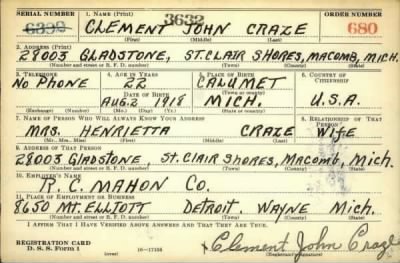 SERIAL NUMBER 1. NAME (Print) ORDER NUMBER
3632
6398 CLEMENT JOHN CRAZE 680
(First) (Middle) (Last)
2. ADDRESS (Print)
28003 GLADSTONE, ST. CLAIR SHORES, MACOMB, MICH.
(Number and street or R. F. D. number) (Town) (County) (State)
3. TELEPHONE 4. AGE IN YEARS 5. PLACE OF BIRTH 6. COUNTRY OF CITIZENSHIP
NO PHONE 22 CALUMET
(Town or county)
DATE OF BIRTH
AUG. 2 1918 MICH. U.S.A.
(Exchange) (Number) (Mo.) (Day) (Yr.) (State or country)
7. NAME OF PERSON WHO WILL ALWAYS KNOW YOUR ADDRESS 8. RELATIONSHIP OF THAT PERSON
MRS. HENRIETTA CRAZE WIFE
(Mr., Mrs., Miss) (First) (Middle) (Last)
9. ADDRESS OF THAT PERSON
28003 GLADSTONE, ST. CLAIR SHORES, MACOMB, MICH.
(Number and street or R. F. D. number) (Town) (County) (State)
10. EMPLOYER'S NAME
R. C. MAHON CO.
11. PLACE OF EMPLOYMENT OR BUSINESS
8650 MT. ELLIOTT DETROIT. WAYNE MICH.
(Number and street or R. F. D. number) (Town) (County) (State)
I AFFIRM THAT I HAVE VERIFIED ABOVE ANSWERS AND THAT THEY ARE TRUE.
REGISTRATION CARD
D. S. S. Form 1 16-17105 Clement John Craze
(Registrant's signature)